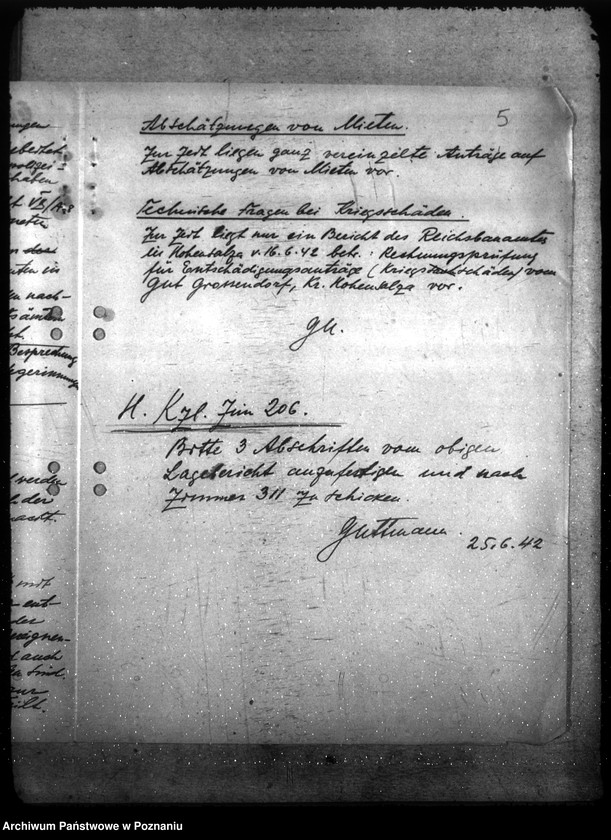 5
Abschätzungen von Mieten.
Zur Zeit liegen ganz vereinzelte Anträge auf
Abschätzungen von Mieten vor.
Technische Fragen bei Kriegsschäden.
Zur Zeit liegt nur ein Bericht des Reichsbauamtes
in Hohensalza v. 16.6.42 betr.: Rechnungsprüfung
für Entschädigungsanträge (Kriegssachschäden) vom
Gut Grossendorf, Kr. Hohensalza vor.
Gu.
H. Kzl. Zim 206.
Bitte 3 Abschriften vom obigen
Lagebericht anzufertigen und nach
Zimmer 311 zu schicken.
Guttmann.
25.6.42
haben
nach-
Besprechung
werden
der
macht.
mit
ent-
der
auch
sind
Archiwum Państwowe w Poznaniu